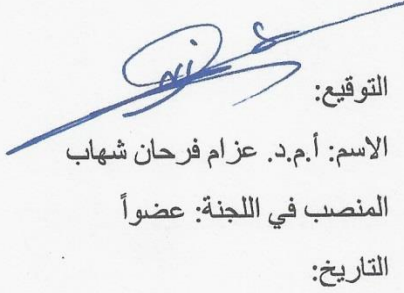 التوقيع:
الاسم: أ.م.د. عزام فرحان شهاب
المنصب في اللجنة: عضواً
التاريخ: